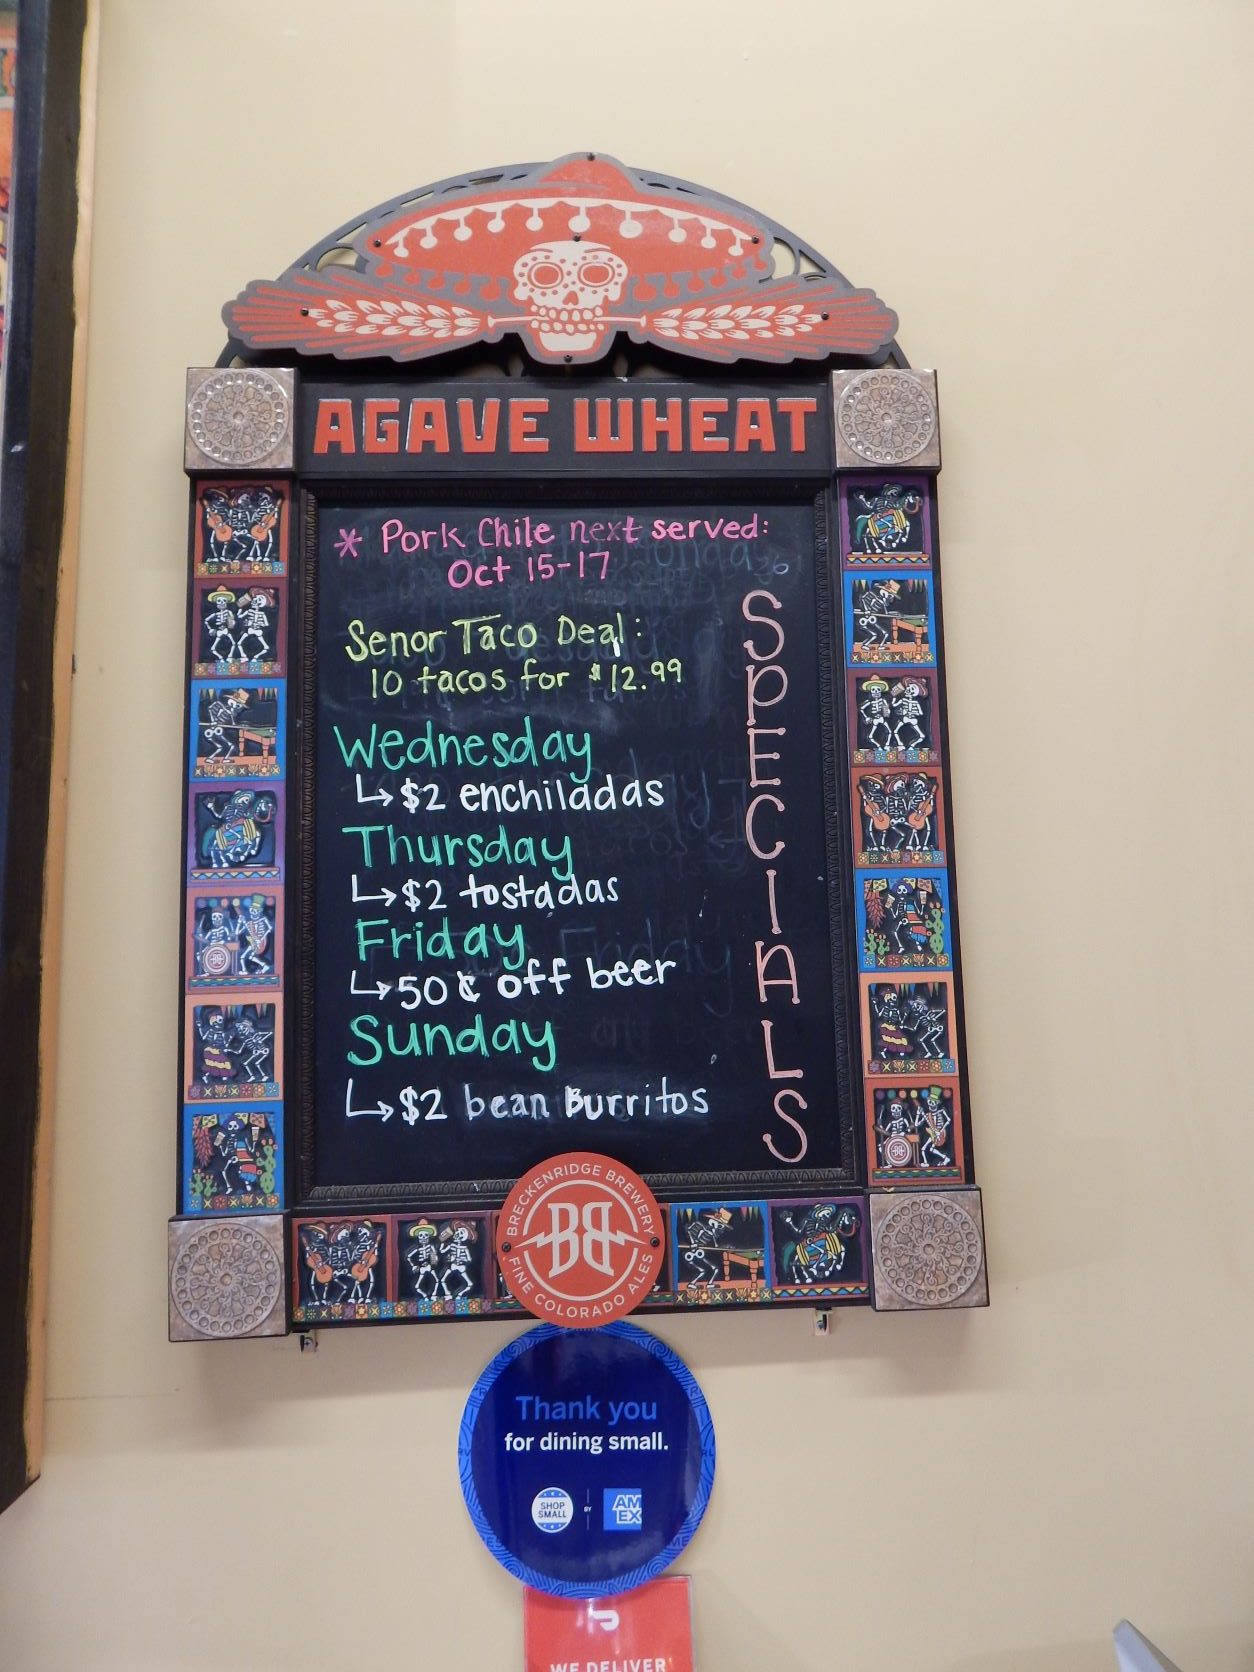 AGAVE WHEAT
* Pork Chile next served:
Oct 15-17
Senor Taco Deal:
10 tacos for $12.99
Wednesday
↳$2 enchiladas
Thursday
↳$2 tostadas
Friday
↳50¢ off beer
Sunday
↳$2 bean Burritos
SPECIALS
BRECKENRIDGE BREWERY
BB
FINE COLORADO ALES
Thank you
for dining small.
SHOP
SMALL
BY
AM
EX
WE DELIVER